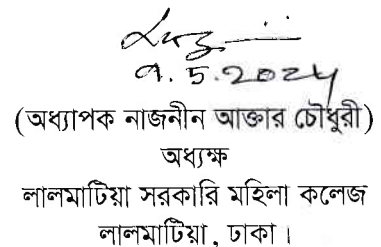 ৭.5.2024
(অধ্যাপক নাজনীন আক্তার চৌধুরী)
অধ্যক্ষ
লালমাটিয়া সরকারি মহিলা কলেজ
লালমাটিয়া, ঢাকা।